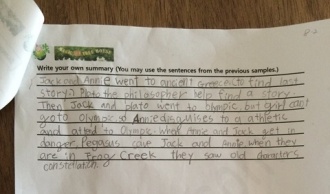 Write your own summary (You may use the sentences from the previous samples.)
Jack and Annie went to ancient Greece to find last
story. Plato the philosopher help find a story.
Then Jack and plato went to olympic. but girl can't
go to olympic. so Annie disguises to a athletic
and attend to Olympic. When Annie and Jack get in
danger, Pegasus save Jack and Annie. when they
are in Frog Creek they saw old characters
constellation.